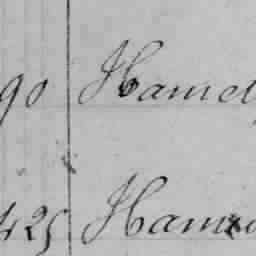 90 Hamel
425 Ham